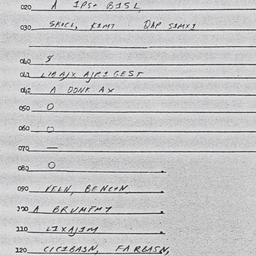 020 A IPS+ BISL
030 SKOCL, KIMT DAP SIMXI
040 $
041 LIBAJX AJRI GEST
042 A DONF AX
050 O
060 O
070 —
080 O
090 VELN, BENCON
100 A BRUMFMT
110 LIXAJIM
120 CICIBASN, FARBASN,